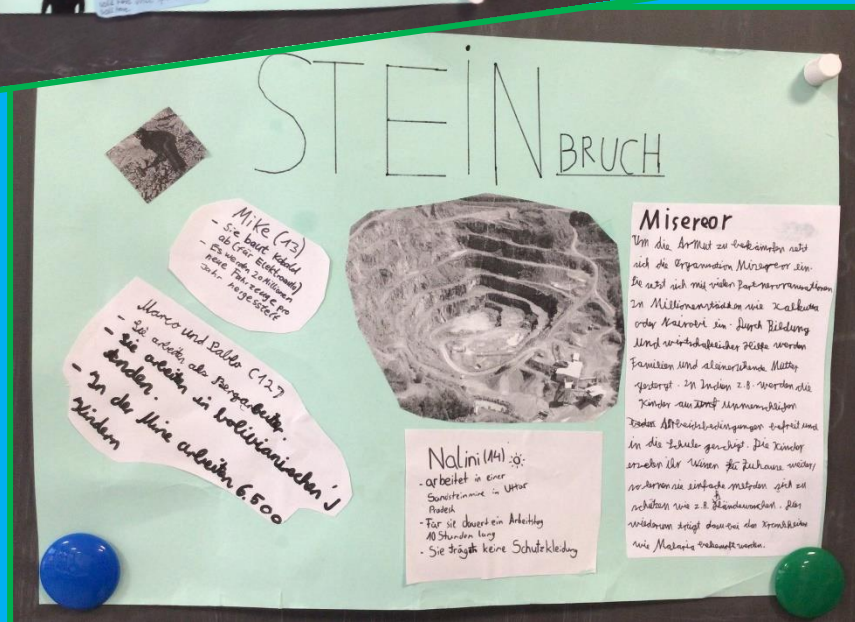 STEINBRUCH
Mike (13)
- Sie baut Kobald
ab (für Elektroauto)
- Es werden 20 Millionen
neue Fahrzeuge pro
Jahr hergesstellt
Marco und Pablo (12?)
- Sie arbeiten als Bergarbeiter.
- Sie arbeiten in bolivianischen
Anden.
- In der Mine arbeiten 6.500
Kindern
Nalini (14)
- arbeitet in einer
Sandsteinmine in Uttar
Pradesh
- Für sie dauert ein Arbeitstag
10 Stunden lang
- Sie trägt keine Schutzkleidung
Misereor
Um die Armut zu bekämfen setzt
sich die Organisation Misereor ein.
Sie setzt sich mit vielen Partnerorganisationen
in Millionenstädten wie Kalkutta
oder Nairobi ein. Durch Bildung
und wirtschaflicher Hilfe werden
Familien und aleinerziehende Mütter
gestärgt. In Indien z.B. werden die
Kinder aus unmenschlichen
Arbreichsbedingungen befreit und
in die Schule geschigt. Die Kinder
erzelen ihr Wissen zu Zuhause weiter,
so lernen sie einfache metoden sich zu
schützen wie z.B. Händewaschen. Dies
wiederum trägt dazu bei das Krankheiten
wie Malaria bekämpft werden.